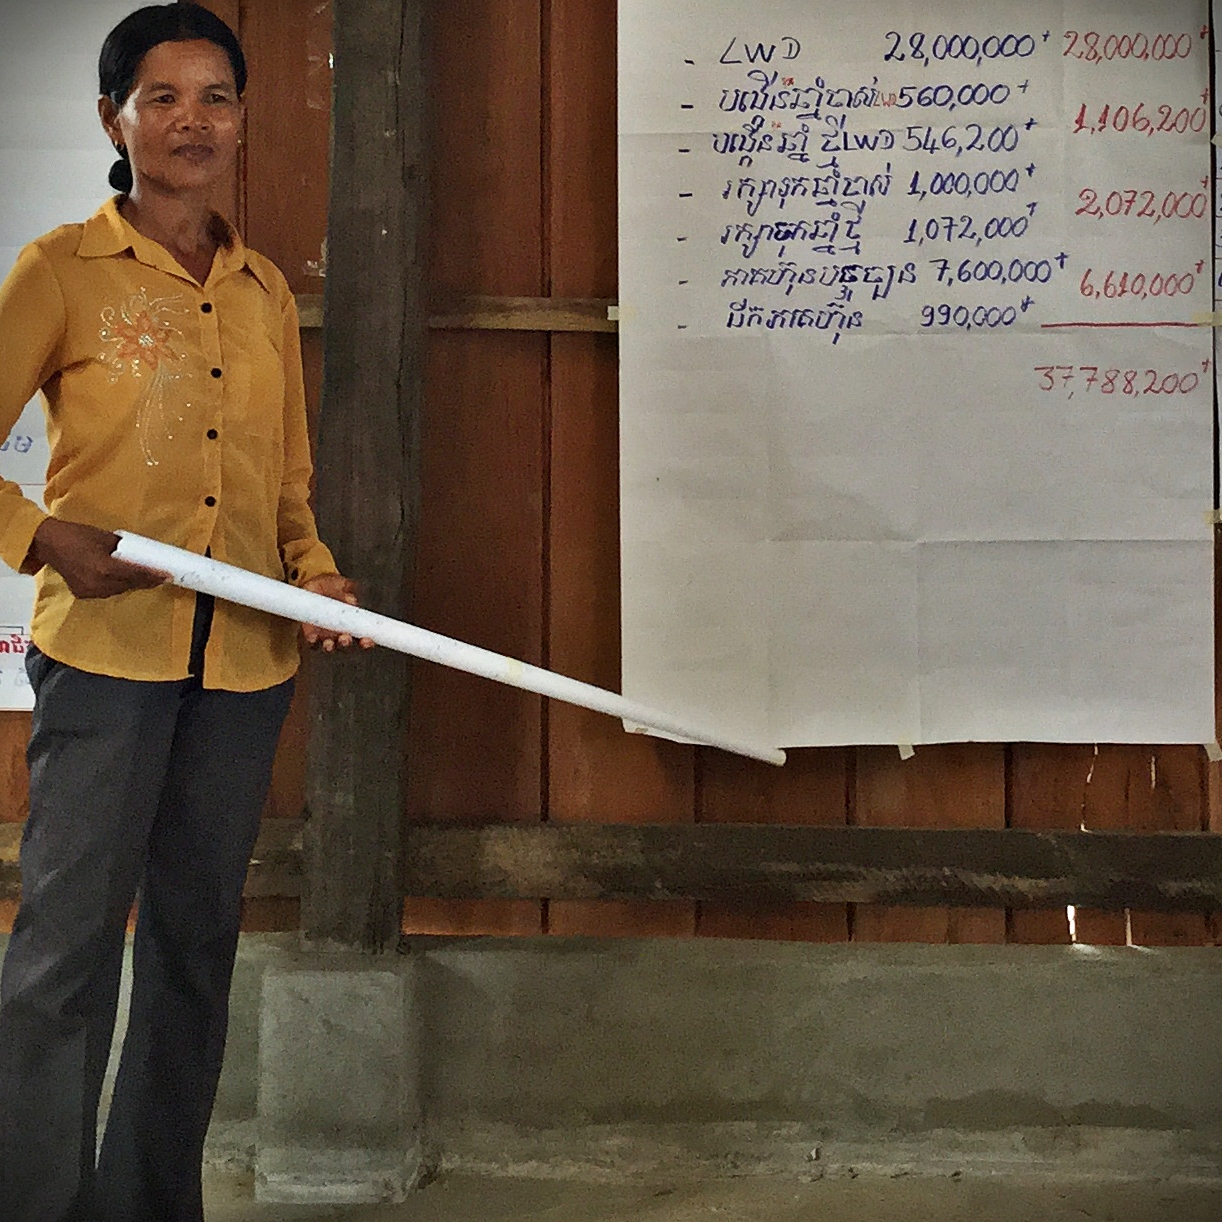 - LWD 28,000,000៛ 28,000,000៛
- បង្កើនឆ្នាំចាស់LWD 560,000៛
1,106,200៛
- បង្កើនឆ្នាំ ថ្មីLWD 546,200៛
- រក្សាទុកឆ្នាំចាស់ 1,000,000៛
2,072,000៛
- រក្សាទុកឆ្នាំថ្មី 1,072,000៛
- ភាគហ៊ុនបច្ចុប្បន្ន 7,600,000៛
6,610,000៛
- ដកភាគហ៊ុន 990,000៛
37,788,200៛